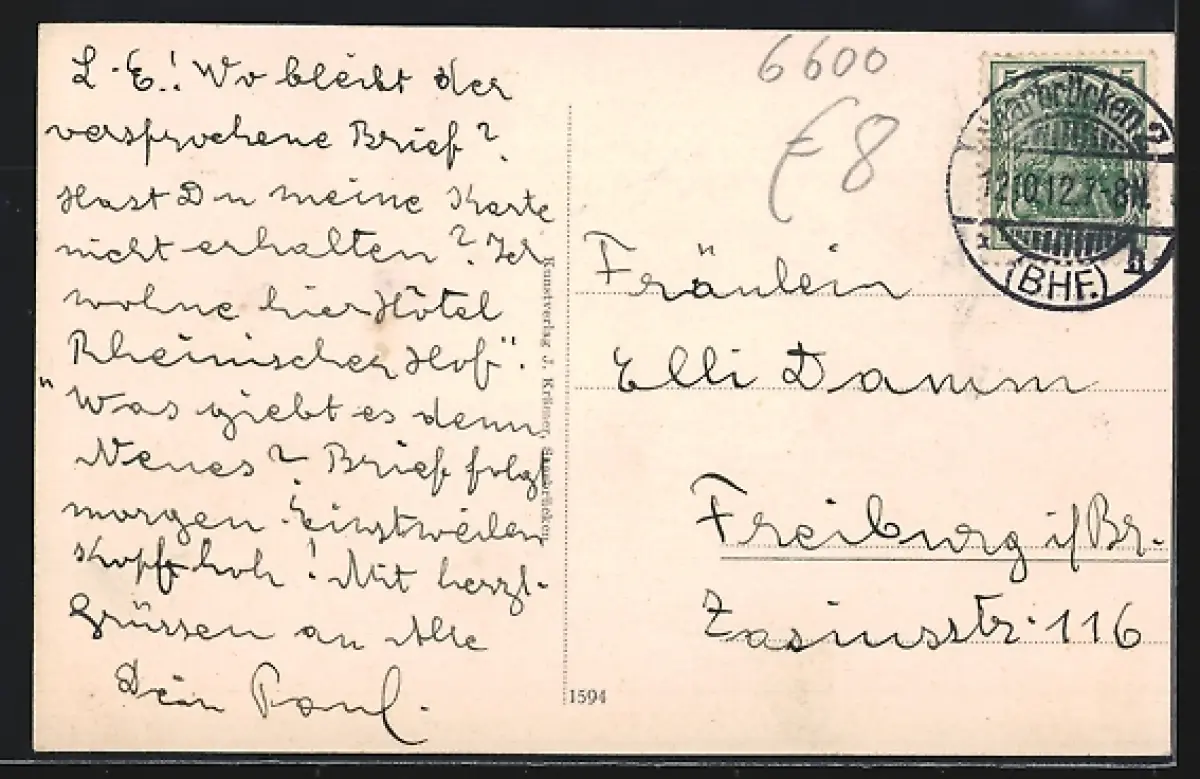 L. E.! Wo bleibt der
versprochene Brief?
Hast Du meine Karte
nicht erhalten? Ich
wohne hier Hôtel
"Rheinischer Hof".
Was giebt es denn
Neues? Brief folgt
morgen. Einstweilen
Kopf hoch! Mit herzl.
Grüssen an Alle
Dein Paul.
Kunstverlag J. Krämer, Saarbrücken.
1594
6600
€8
5 5
Saarbrücken 2
12.10.12.7-8N.
* b
(BHF.)
Fräulein
Elli Damm
Freiburg i/Br.
Zasiusstr. 116